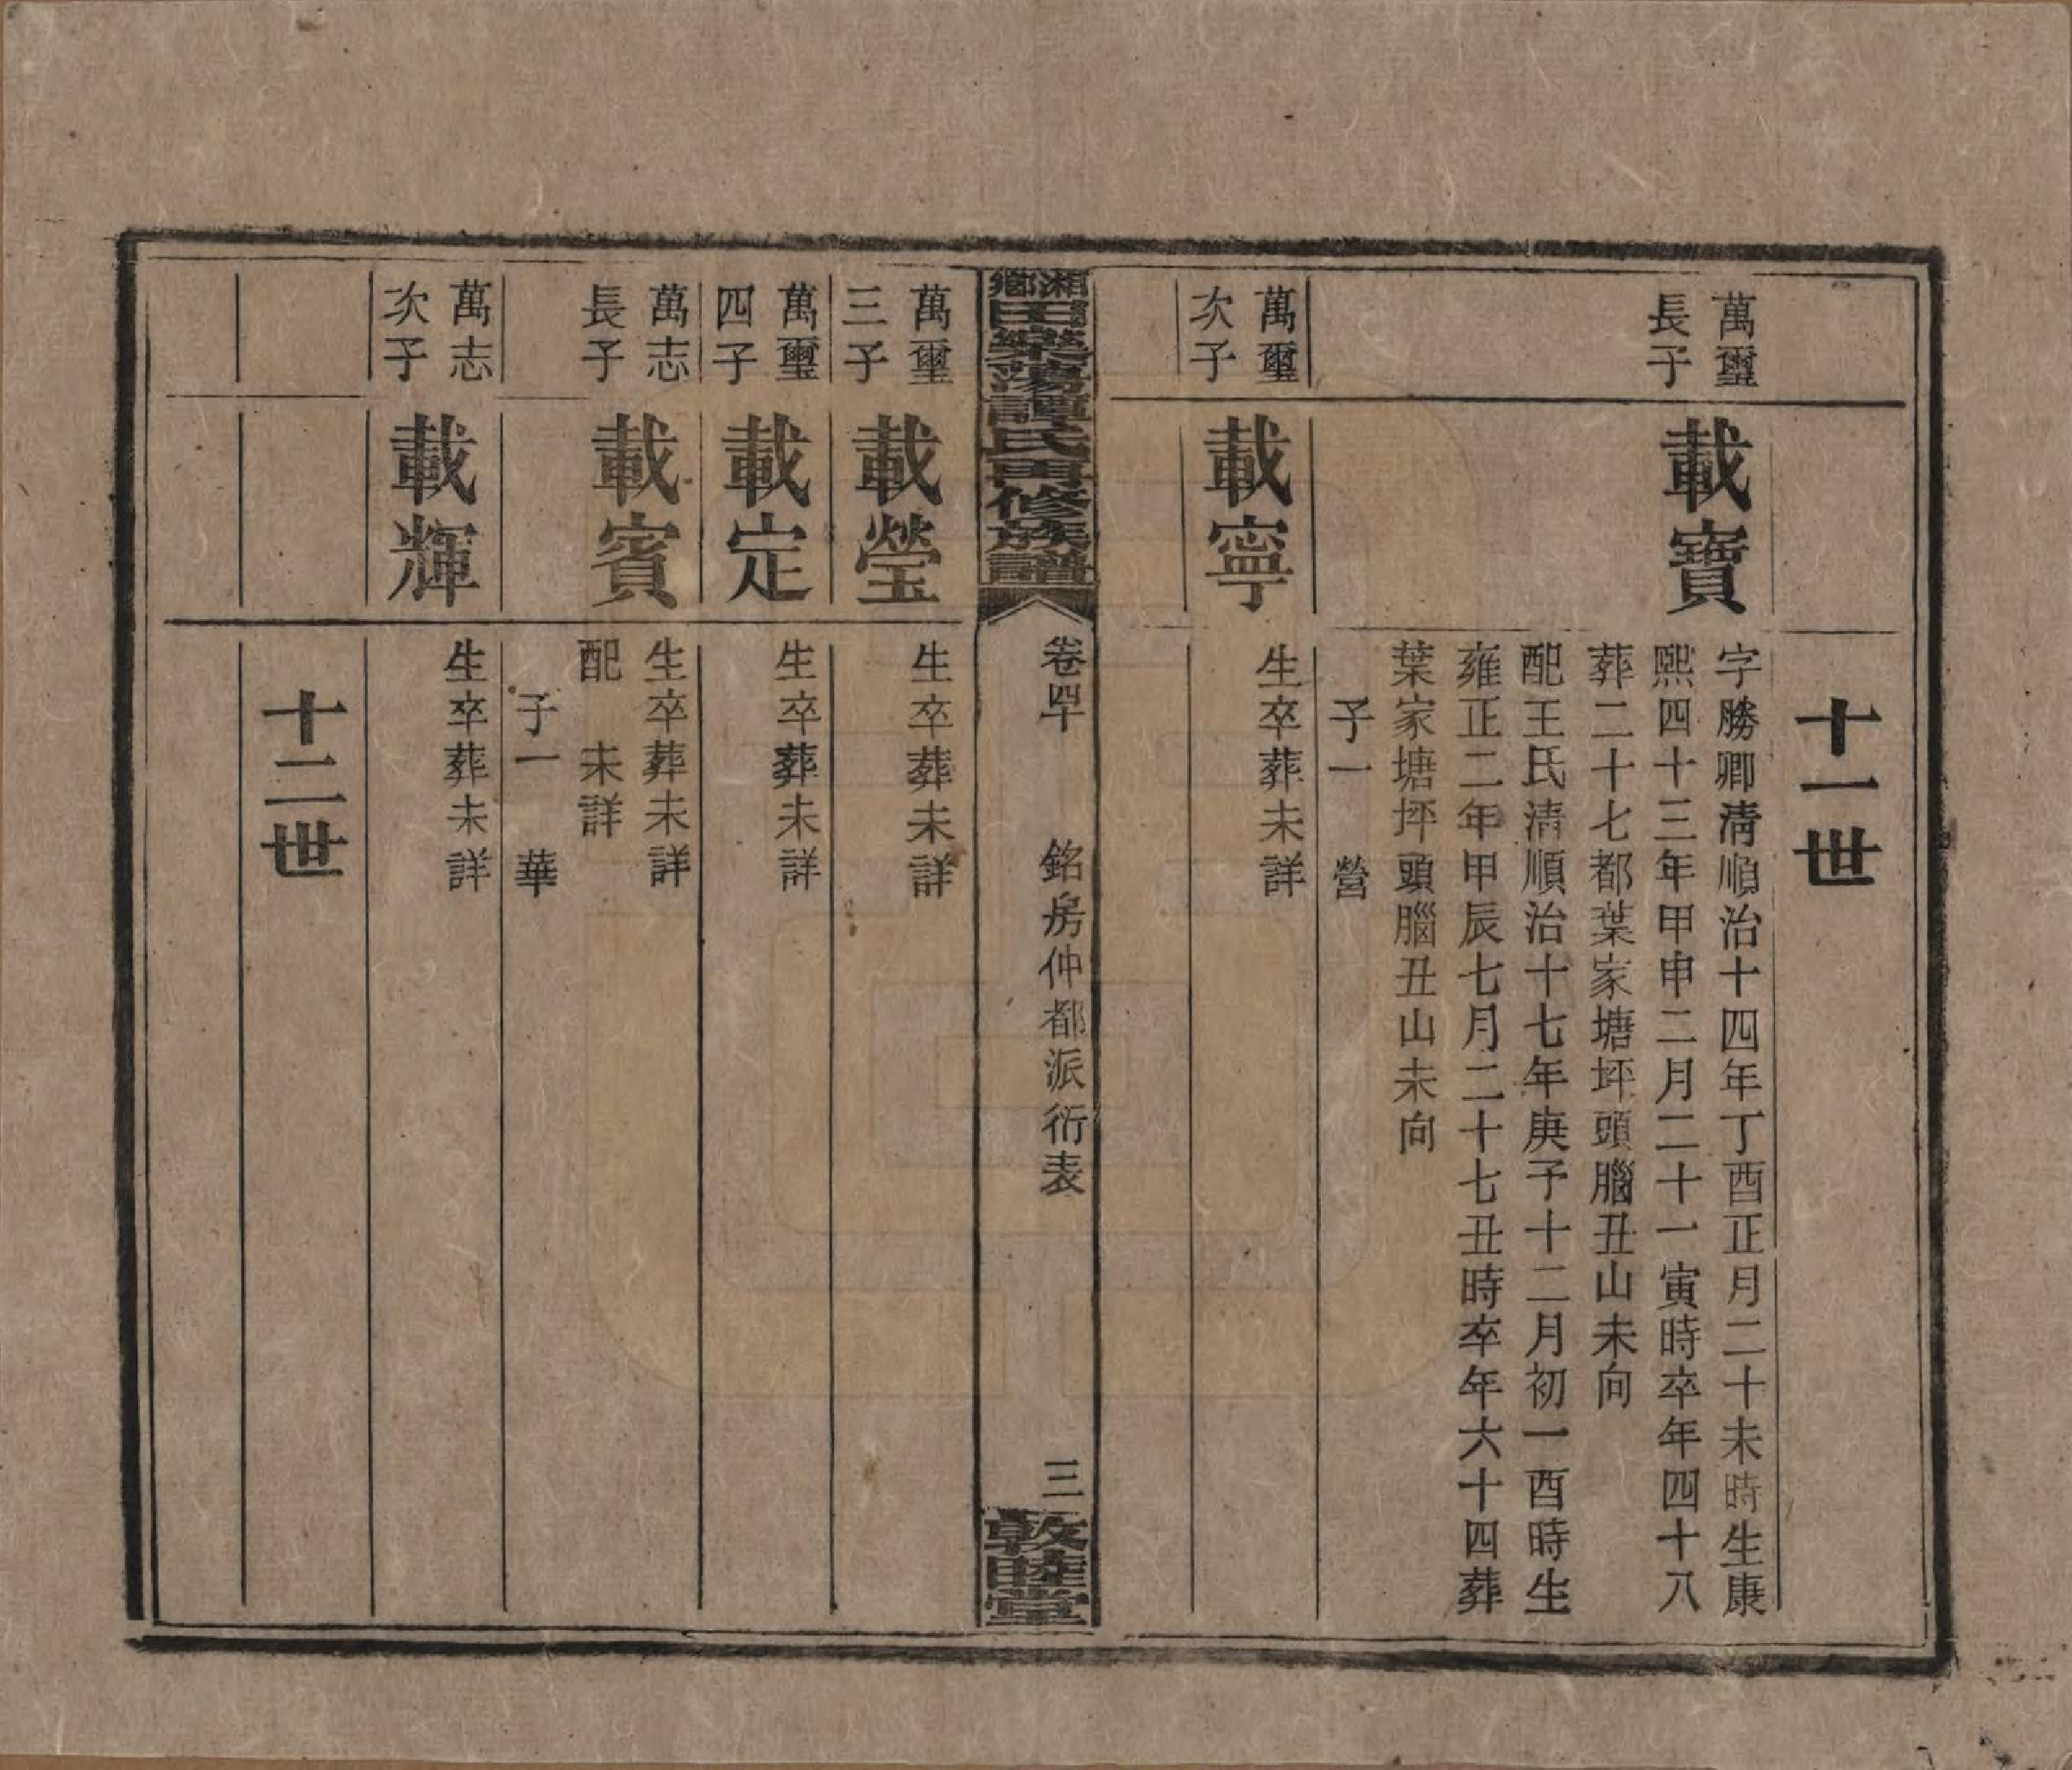 十一世
萬璽
長子
載寶
字勝卿清順治十四年丁酉正月二十未時生康
熙四十三年甲申二月二十一寅時卒年四十八
葬二十七都葉家塘坪頭腦丑山未向
配王氏清順治十七年庚子十二月初一酉時生
雍正二年甲辰七月二十七丑時卒年六十四葬
葉家塘坪頭腦丑山未向
子一　營
萬璽
次子
載寧
生卒葬未詳
湘鄉田樂蕩譚氏再修族譜
卷四十　銘房仲都派衍表　三
敦睦堂
萬璽
三子
載瑩
生卒葬未詳
萬璽
四子
載定
生卒葬未詳
萬志
長子
載賓
生卒葬未詳
配　未詳
子一　華
萬志
次子
載輝
生卒葬未詳
十二世